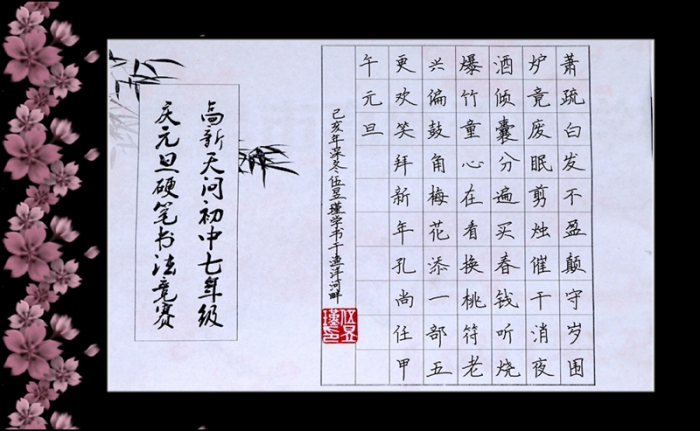 萧疏白发不盈颠守岁围
炉竟废眠剪烛催干消夜
酒倾囊分遍买春钱听烧
爆竹童心在看换桃符老
兴偏鼓角梅花添一部五
更欢笑拜新年孔尚任甲
午元旦
己亥年深冬伍昱瑾学书于洋河畔
伍昱瑾印
高新天问初中七年级
庆元旦硬笔书法竞赛